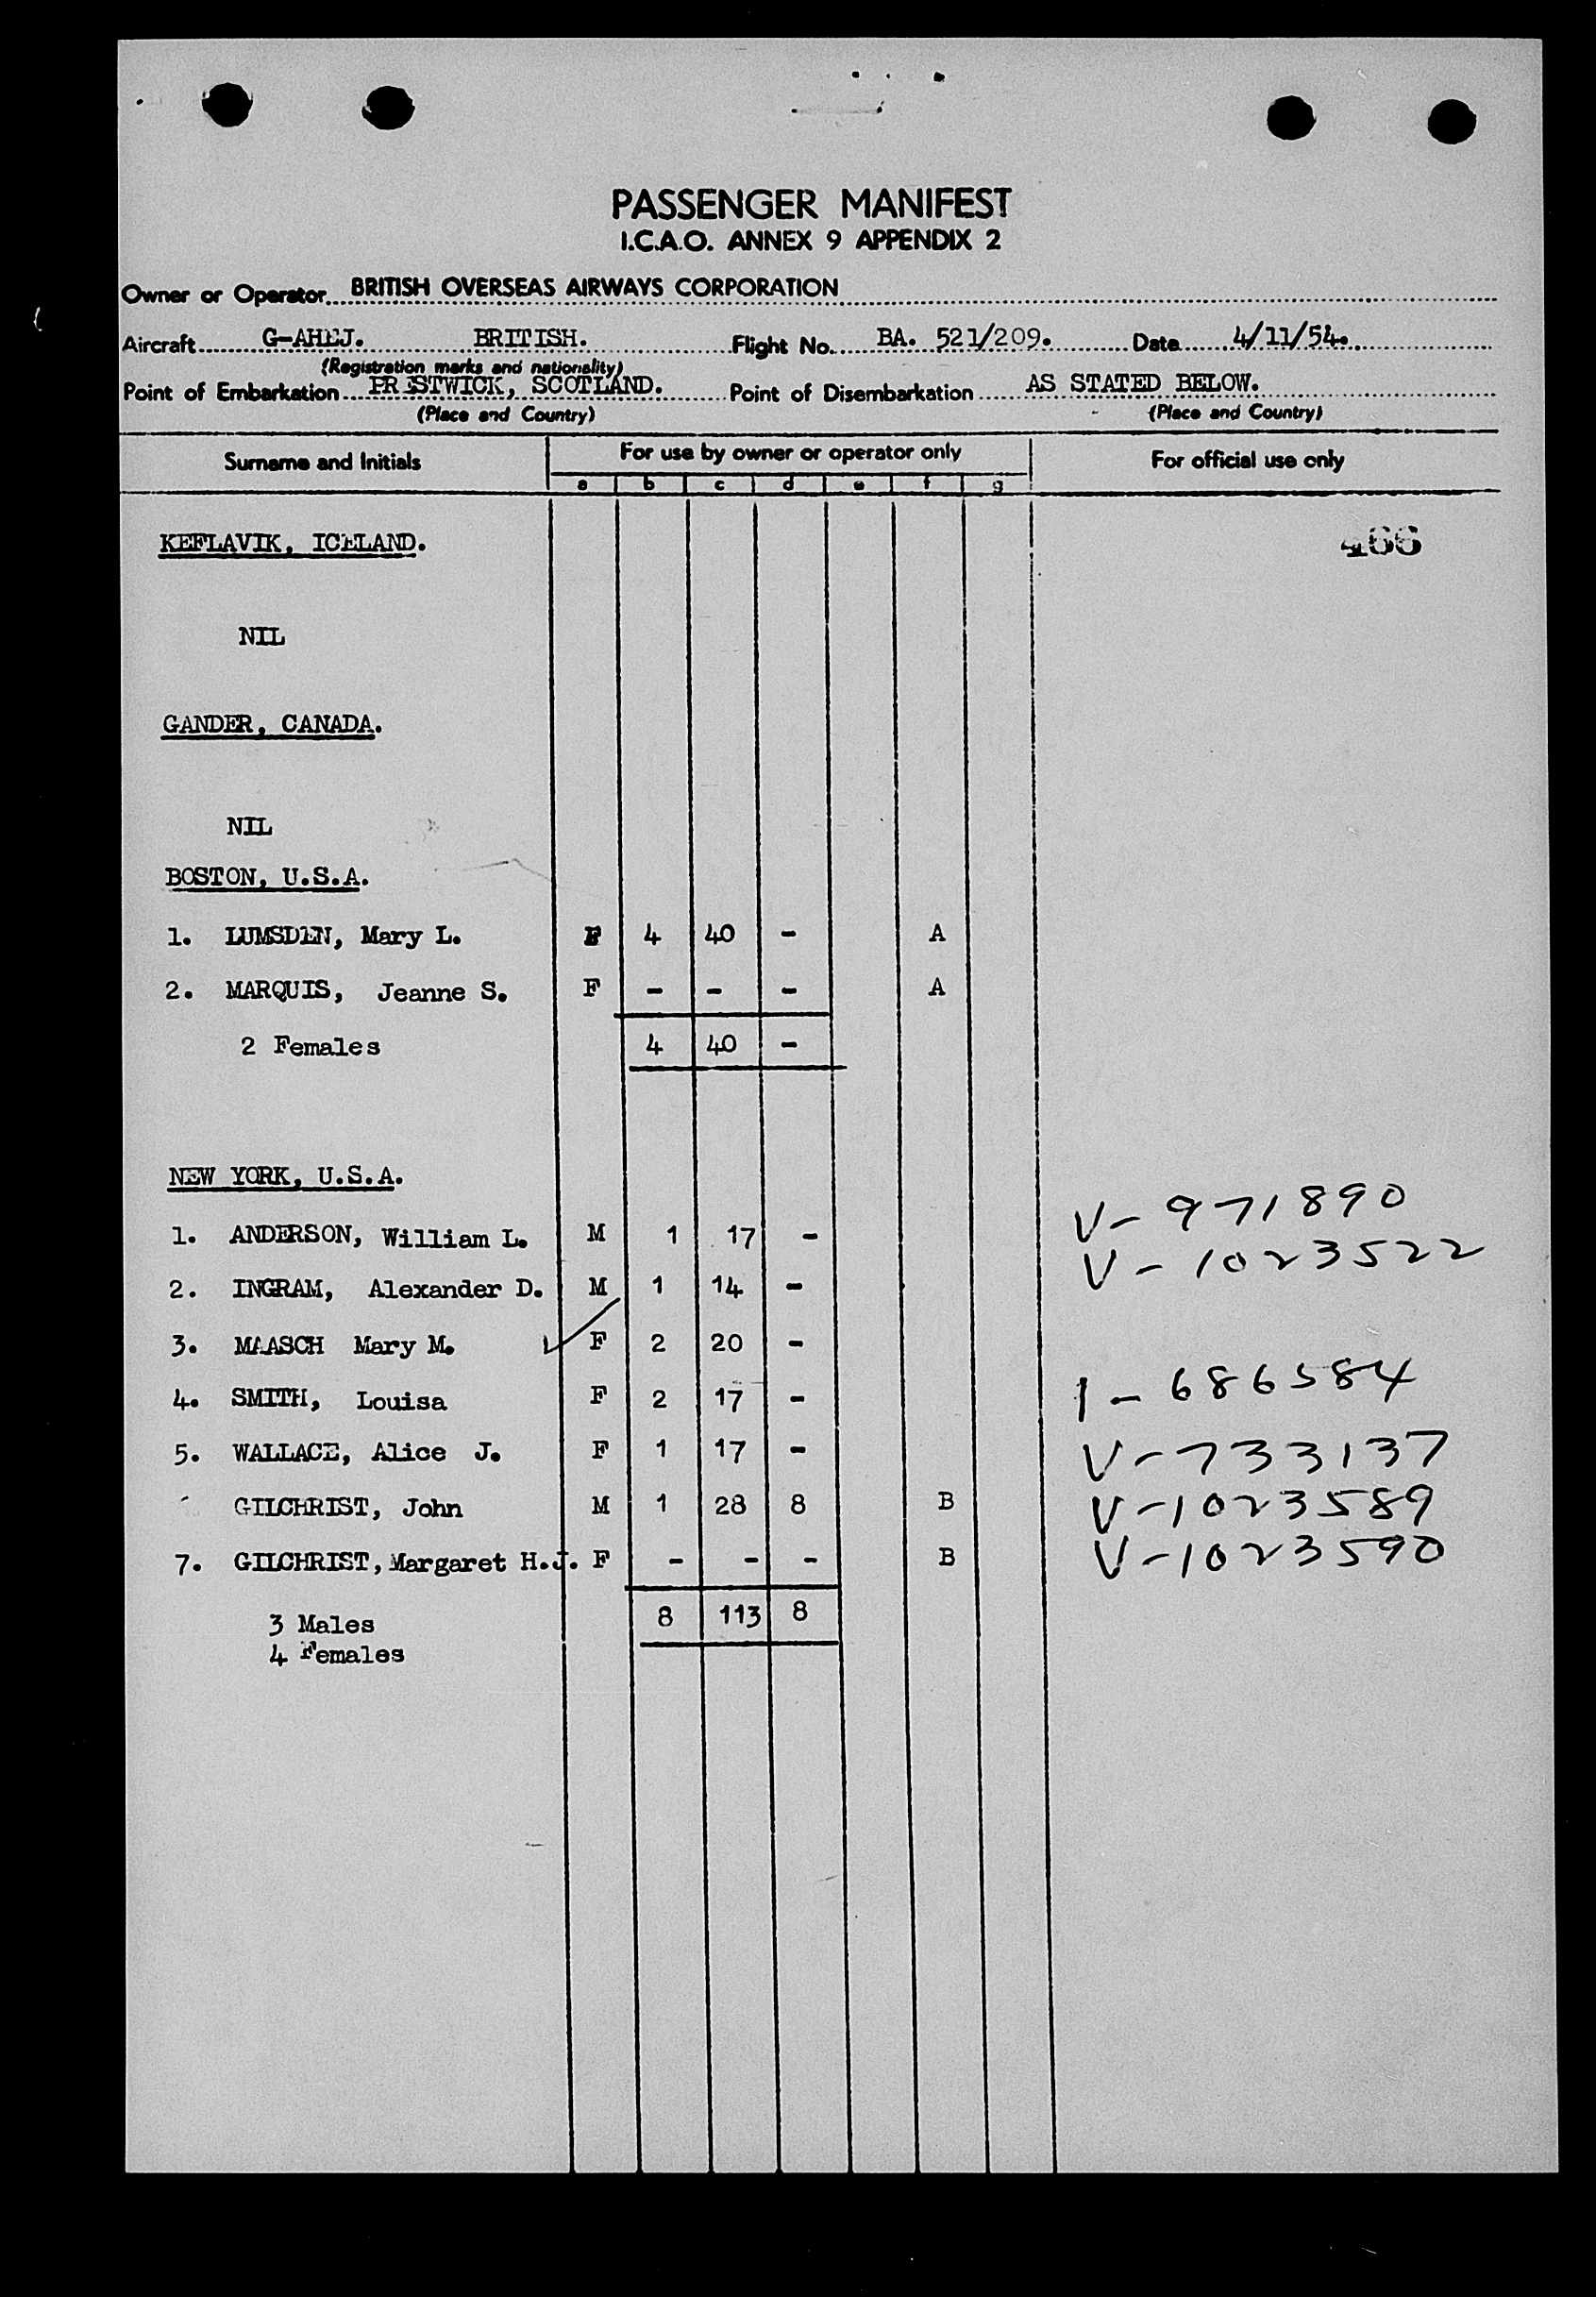 PASSENGER MANIFEST
I.C.A.O. ANNEX 9 APPENDIX 2
Owner or Operator BRITISH OVERSEAS AIRWAYS CORPORATION
Aircraft G-AHEJ. BRITISH. Flight No. BA. 521/209. Date 4/11/54.
(Registration marks and nationality)
Point of Embarkation PRESTWICK, SCOTLAND. Point of Disembarkation AS STATED BELOW.
(Place and Country) (Place and Country)
Surname and Initials For use by owner or operator only For official use only
a b c d e f g
KEFLAVIK, ICELAND. 466
NIL
GANDER, CANADA.
NIL
BOSTON, U.S.A.
1. LUMSDEN, Mary L. F 4 40 - A
2. MARQUIS, Jeanne S. F - - - A
2 Females 4 40 -
NEW YORK, U.S.A.
1. ANDERSON, William L. M 1 17 - V-971890
2. INGRAM, Alexander D. M 1 14 - V-1023522
3. MAASCH Mary M. F 2 20 -
4. SMITH, Louisa F 2 17 - 1-686584
5. WALLACE, Alice J. F 1 17 - V-733137
GILCHRIST, John M 1 28 8 B V-1023589
7. GILCHRIST, Margaret H.J. F - - - B V-1023590
3 Males 8 113 8
4 Females